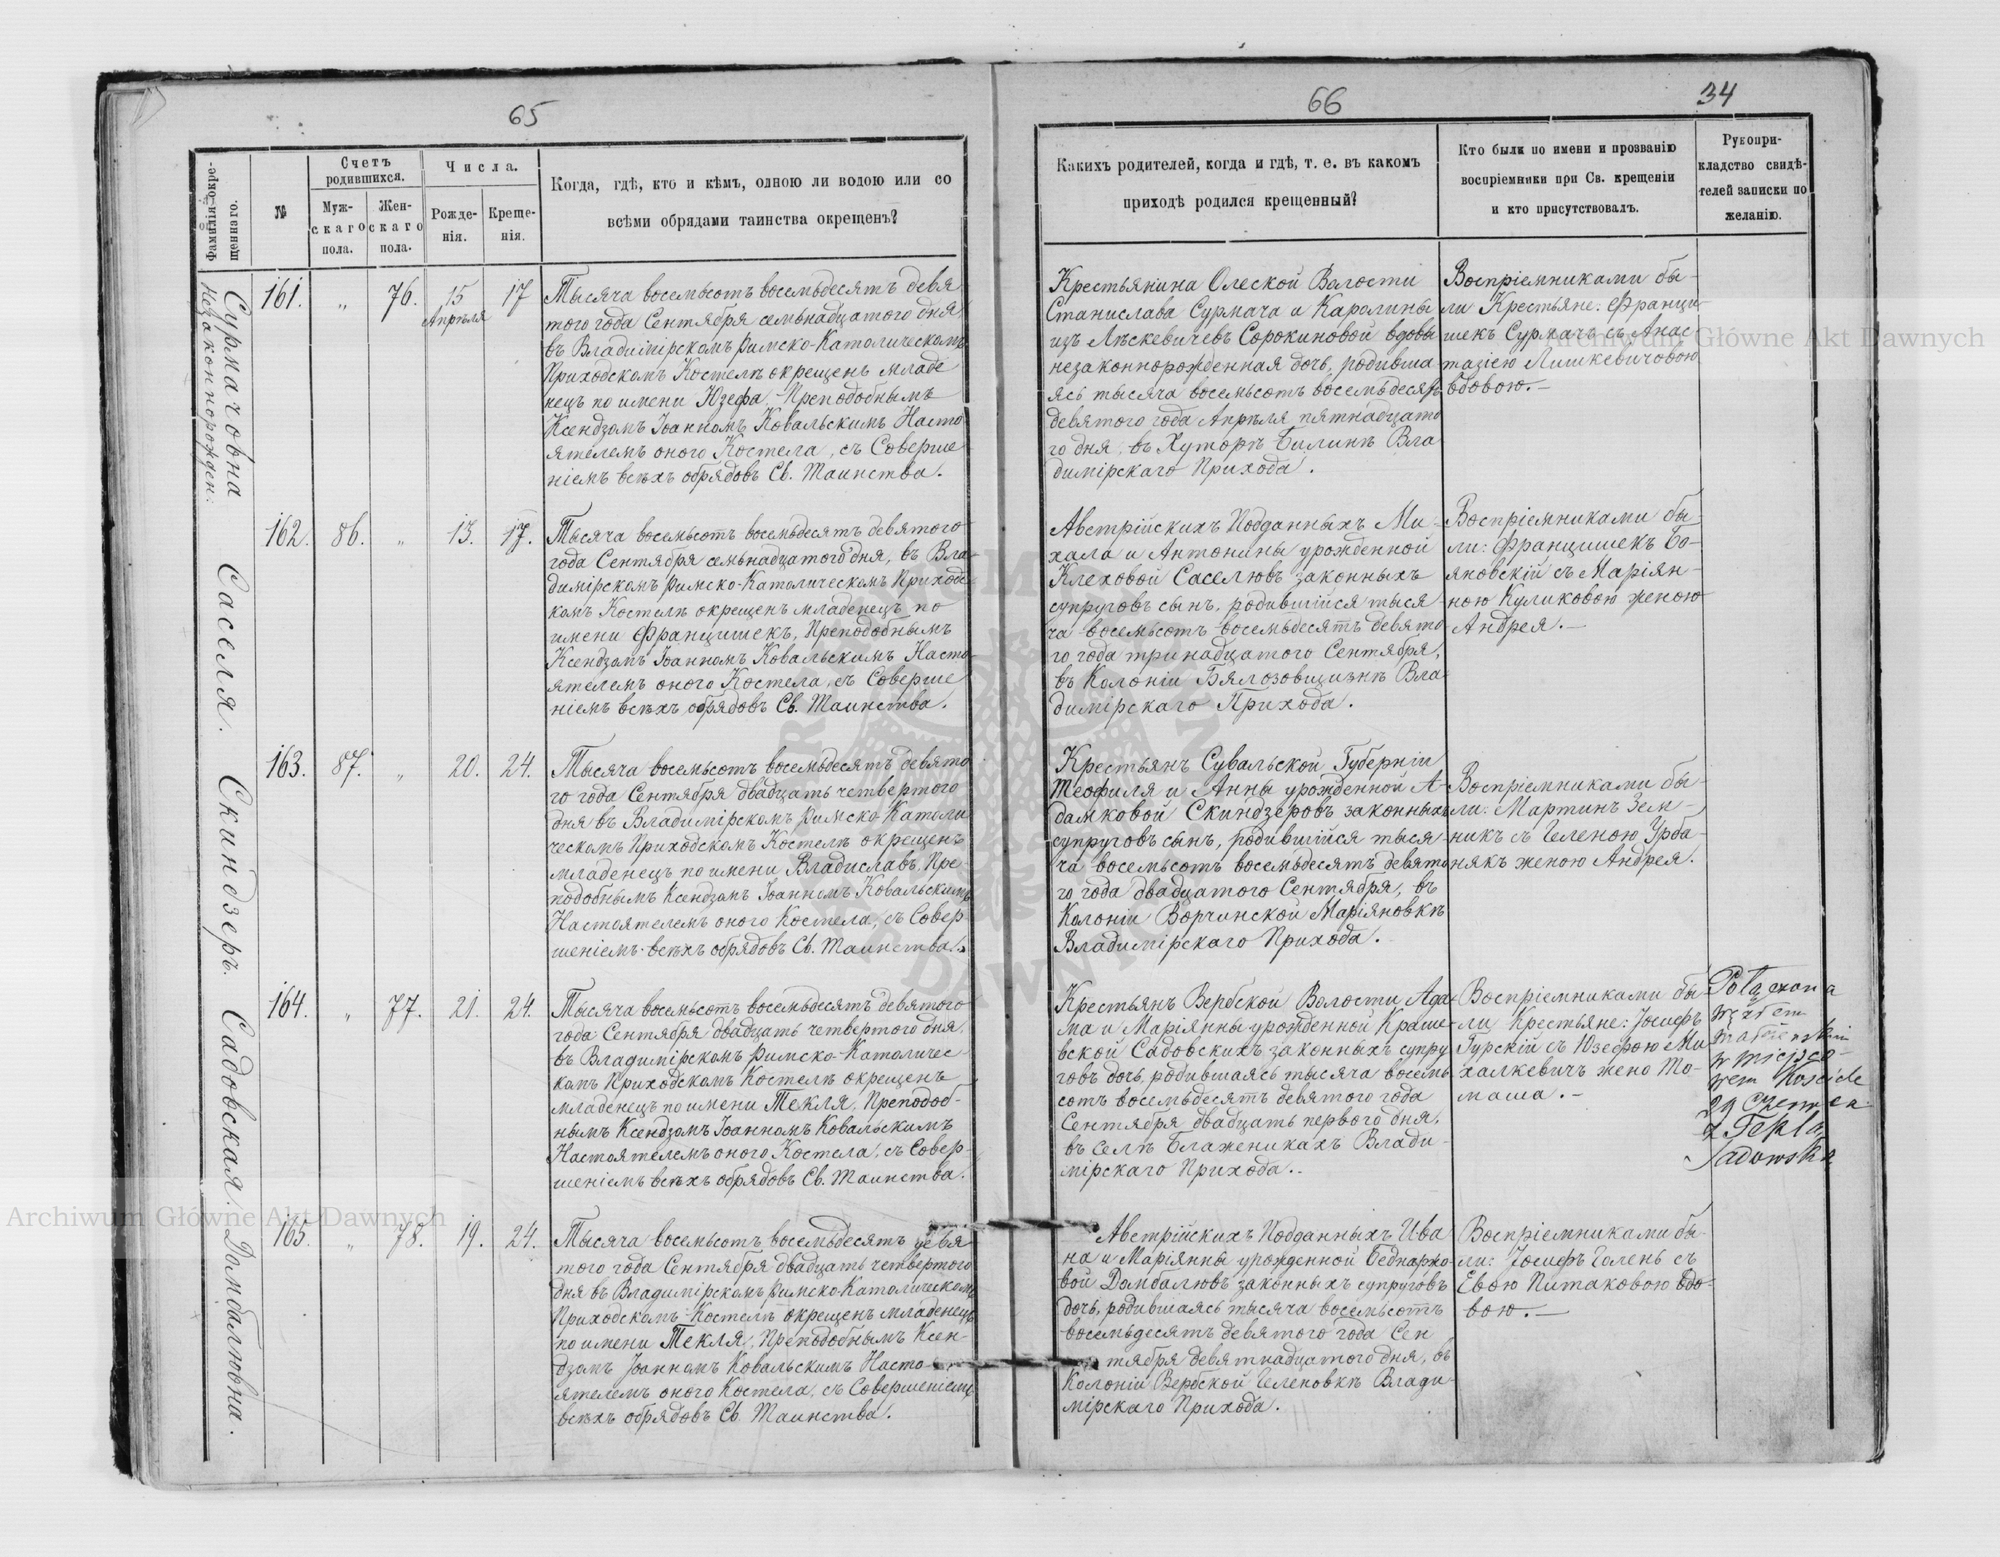 65
Фамилія окрещеннаго.
№
Счетъ родившихся.
Мужскаго пола.
Женскаго пола.
Числа.
Рожденія.
Крещенія.
Когда, гдѣ, кто и кѣмъ, одною ли водою или со
всѣми обрядами таинства окрещенъ?
Сурмачовна
Незаконнорожден:
161. " 76. 15 Апрѣля 17
Тысяча восемьсотъ восемьдесятъ девя
того года Сентября семьнадцатого дня
въ Владимірскомъ Римско-Католическомъ
Приходскомъ Костелѣ окрещенъ младе
нецъ по имени Юзефа, Преподобнымъ
Ксендзомъ Іоанномъ Ковальскимъ Насто
ятелемъ оного Костела, съ Соверше
ніемъ всѣхъ обрядовъ Св. Таинства.
Саселя.
162. 86. " 13. 17.
Тысяча восемьсотъ восемьдесятъ девятого
года Сентября семьнадцатого дня, въ Вла-
димірскомъ Римско-Католическомъ Приходс
комъ Костелѣ окрещенъ младенецъ по
имени Францишекъ, Преподобнымъ
Ксендзомъ Іоанномъ Ковальскимъ Насто-
ятелемъ оного Костела, съ Соверше
ніемъ всѣхъ обрядовъ Св. Таинства.
Скиндзеръ.
163. 87. " 20. 24.
Тысяча восемьсотъ восемьдесятъ девято
го года Сентября двадцать четвертого
дня въ Владимірскомъ Римско-Католи
ческомъ Приходскомъ Костелѣ окрещенъ
младенецъ по имени Владиславъ, Пре-
подобнымъ Ксендзомъ Іоанномъ Ковальскимъ
Настоятелемъ оного Костела, съ Совер-
шеніемъ всѣхъ обрядовъ Св. Таинства.
Садовская.
164. " 77. 21. 24.
Тысяча восемьсотъ восемьдесятъ девятого
года Сентября двадцать четвертого дня,
въ Владимірскомъ Римско-Католичес-
комъ Приходскомъ Костелѣ окрещенъ
младенецъ по имени Текля, Преподоб-
нымъ Ксендзомъ Іоанномъ Ковальскимъ
Настоятелемъ оного Костела, съ Совер-
шеніемъ всѣхъ обрядовъ Св. Таинства.
Дымбалювна.
165. " 78. 19. 24.
Тысяча восемьсотъ восемьдесятъ девя
того года Сентября двадцать четвертого
дня въ Владимірскомъ Римско-Католическомъ
Приходскомъ Костелѣ окрещенъ младенецъ
по имени Текля, Преподобнымъ Ксен-
дзомъ Іоанномъ Ковальскимъ Насто-
ятелемъ оного Костела, съ Совершеніемъ
всѣхъ обрядовъ Св. Таинства.
66
34
Какихъ родителей, когда и гдѣ, т. е. въ какомъ
приходѣ родился крещенный?
Кто были по имени и прозванію
воспріемники при Св. крещеніи
и кто присутствовалъ.
Рукопри-
кладство свидѣ-
телей записки по
желанію.
Крестьянина Олеской Волости
Станислава Сурмача и Каролины
изъ Лѣскевичевъ Сорокиновой вдовы
незаконнорожденная дочь, родивша
ясь тысяча восемьсотъ восемьдесятъ
девятого года Апрѣля пятнадцато
го дня, въ Хуторѣ Билинѣ Вла
димірскаго Прихода.
Воспріемниками бы-
ли Крестьяне: Франци-
шекъ Сурмачъ съ Анас
тазіею Лишкевичовою
вдовою.-
Австрійскихъ Подданныхъ Ми-
хала и Антонины урожденной
Клеховой Саселювъ законныхъ
супруговъ сынъ, родившійся тыся
ча восемьсотъ восемьдесятъ девято
го года тринадцатого Сентября,
въ Колоніи Бялозовщизнѣ Вла-
димірскаго Прихода.
Воспріемниками бы-
ли: Францишекъ Бо-
яновскій съ Маріян-
ною Куликовою женою
Андрея.-
Крестьянъ Сувальской Губерніи
Теофиля и Анны урожденной А-
дамковой Скиндзеровъ законныхъ
супруговъ сынъ, родившійся тыся-
ча восемьсотъ восемьдесятъ девято
го года двадцатого Сентября, въ
Колоніи Ворчинской Маріяновкѣ
Владимірскаго Прихода.
Воспріемниками бы-
ли: Мартинъ Зем-
никъ съ Геленою Урба-
някъ женою Андрея.
Крестьянъ Вербской Волости Ада-
ма и Маріянны урожденной Краше-
вской Садовскихъ законныхъ супру
говъ дочь, родившаясь тысяча восемь
сотъ восемьдесятъ девятого года
Сентября двадцать первого дня,
въ Селѣ Блаженикахъ Влади-
мірскаго Прихода..
Воспріемниками бы-
ли Крестьяне: Іосифъ
Гурскій съ Юзефою Ми
халкевичъ жено То-
маша.-
Połączona
węzłem
małżeńskim
w miejsco-
wem Kosciele
z Tekla
Sadowska
Австрійскихъ Подданныхъ Ива
на и Маріянны урожденной Беднархо-
вой Домбалювъ законныхъ супруговъ
дочь, родившаясь тысяча восемьсотъ
восемьдесятъ девятого года Сен
тября девятнадцатого дня, въ
Колоніи Вербской Геленовкѣ Влади-
мірскаго Прихода.
Воспріемниками бы-
ли: Іосифъ Голень съ
Евою Питаковою вдо-
вою.-
Archiwum Główne Akt Dawnych
Archiwum Główne Akt Dawnych